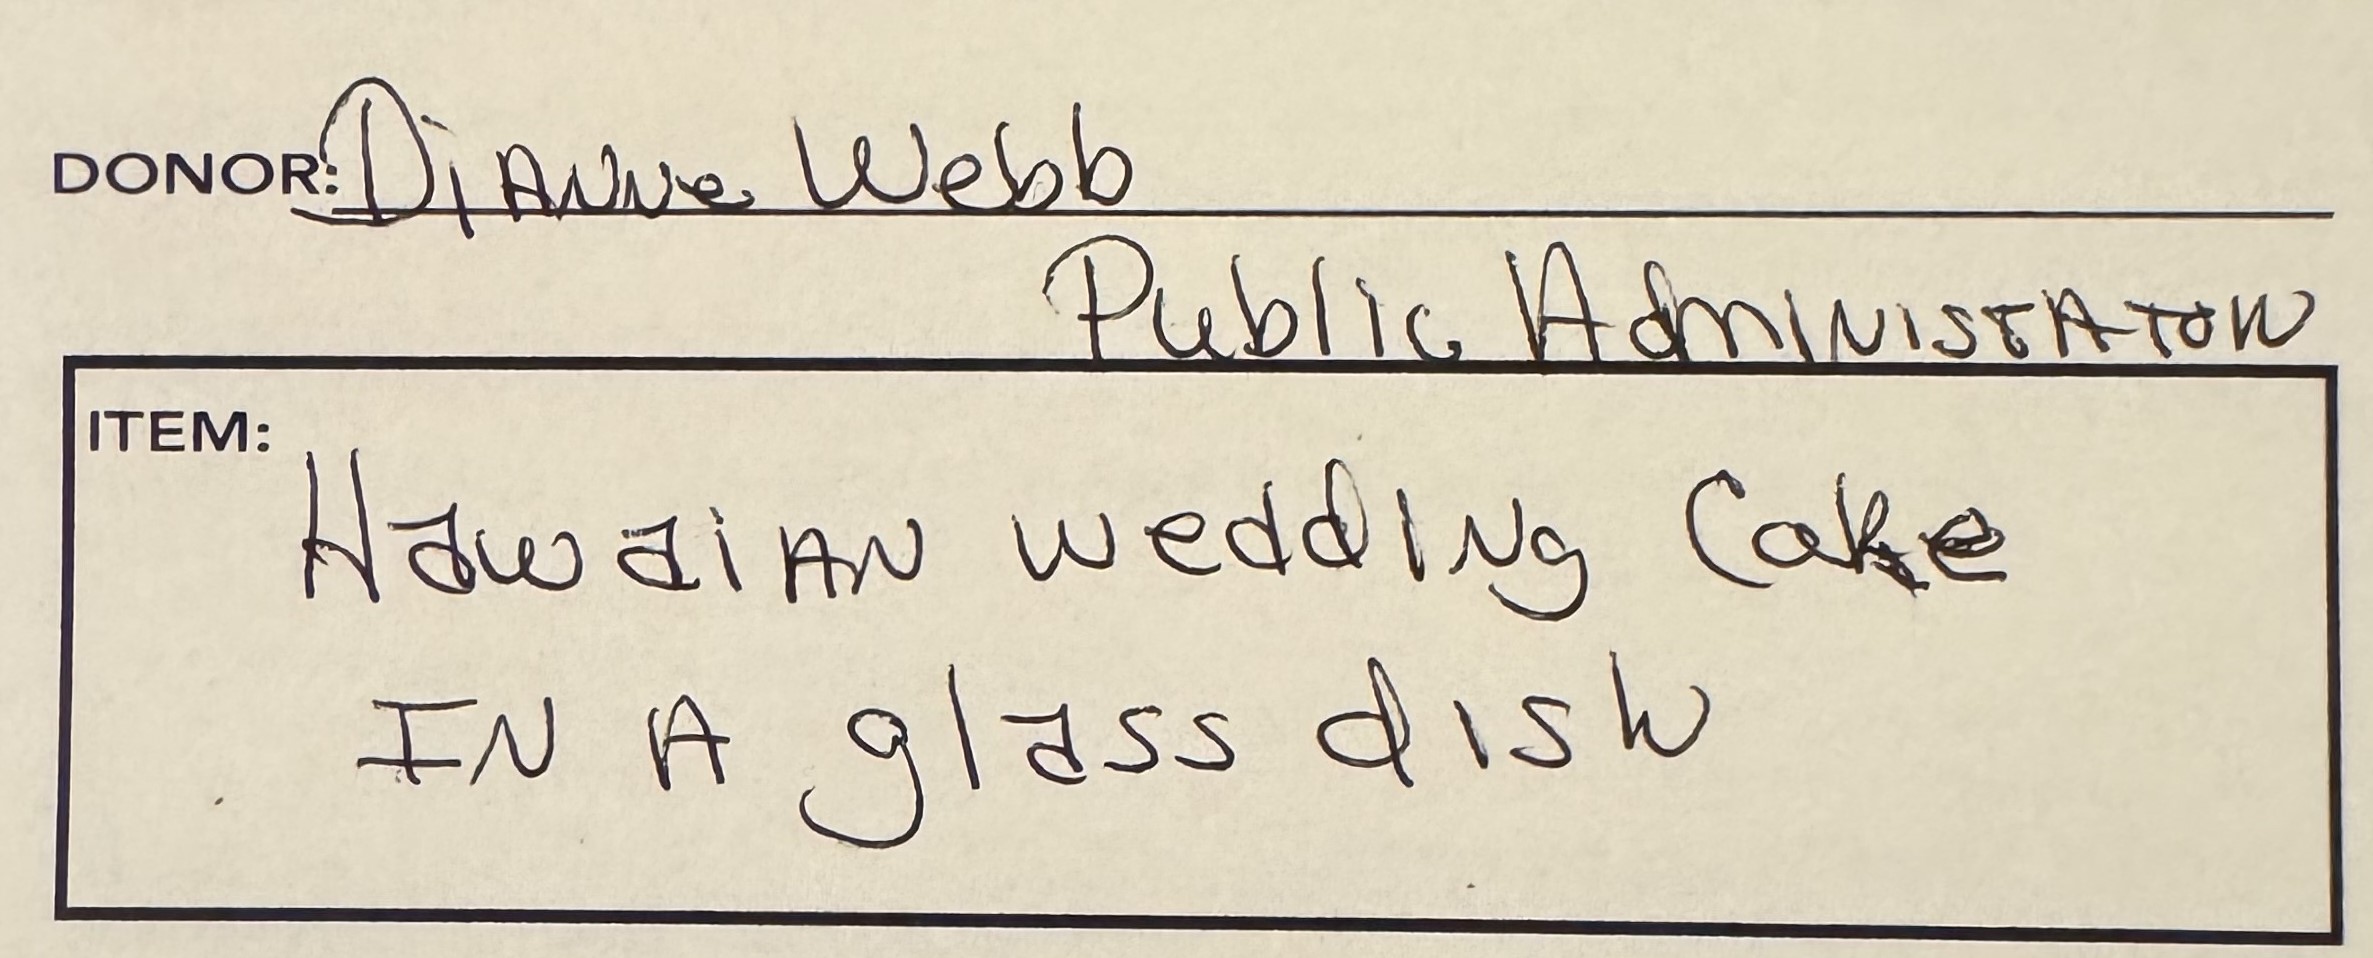 DONOR: Dianne Webb
Public Administator
ITEM:
Hawaiian wedding Cake
IN A glass dish